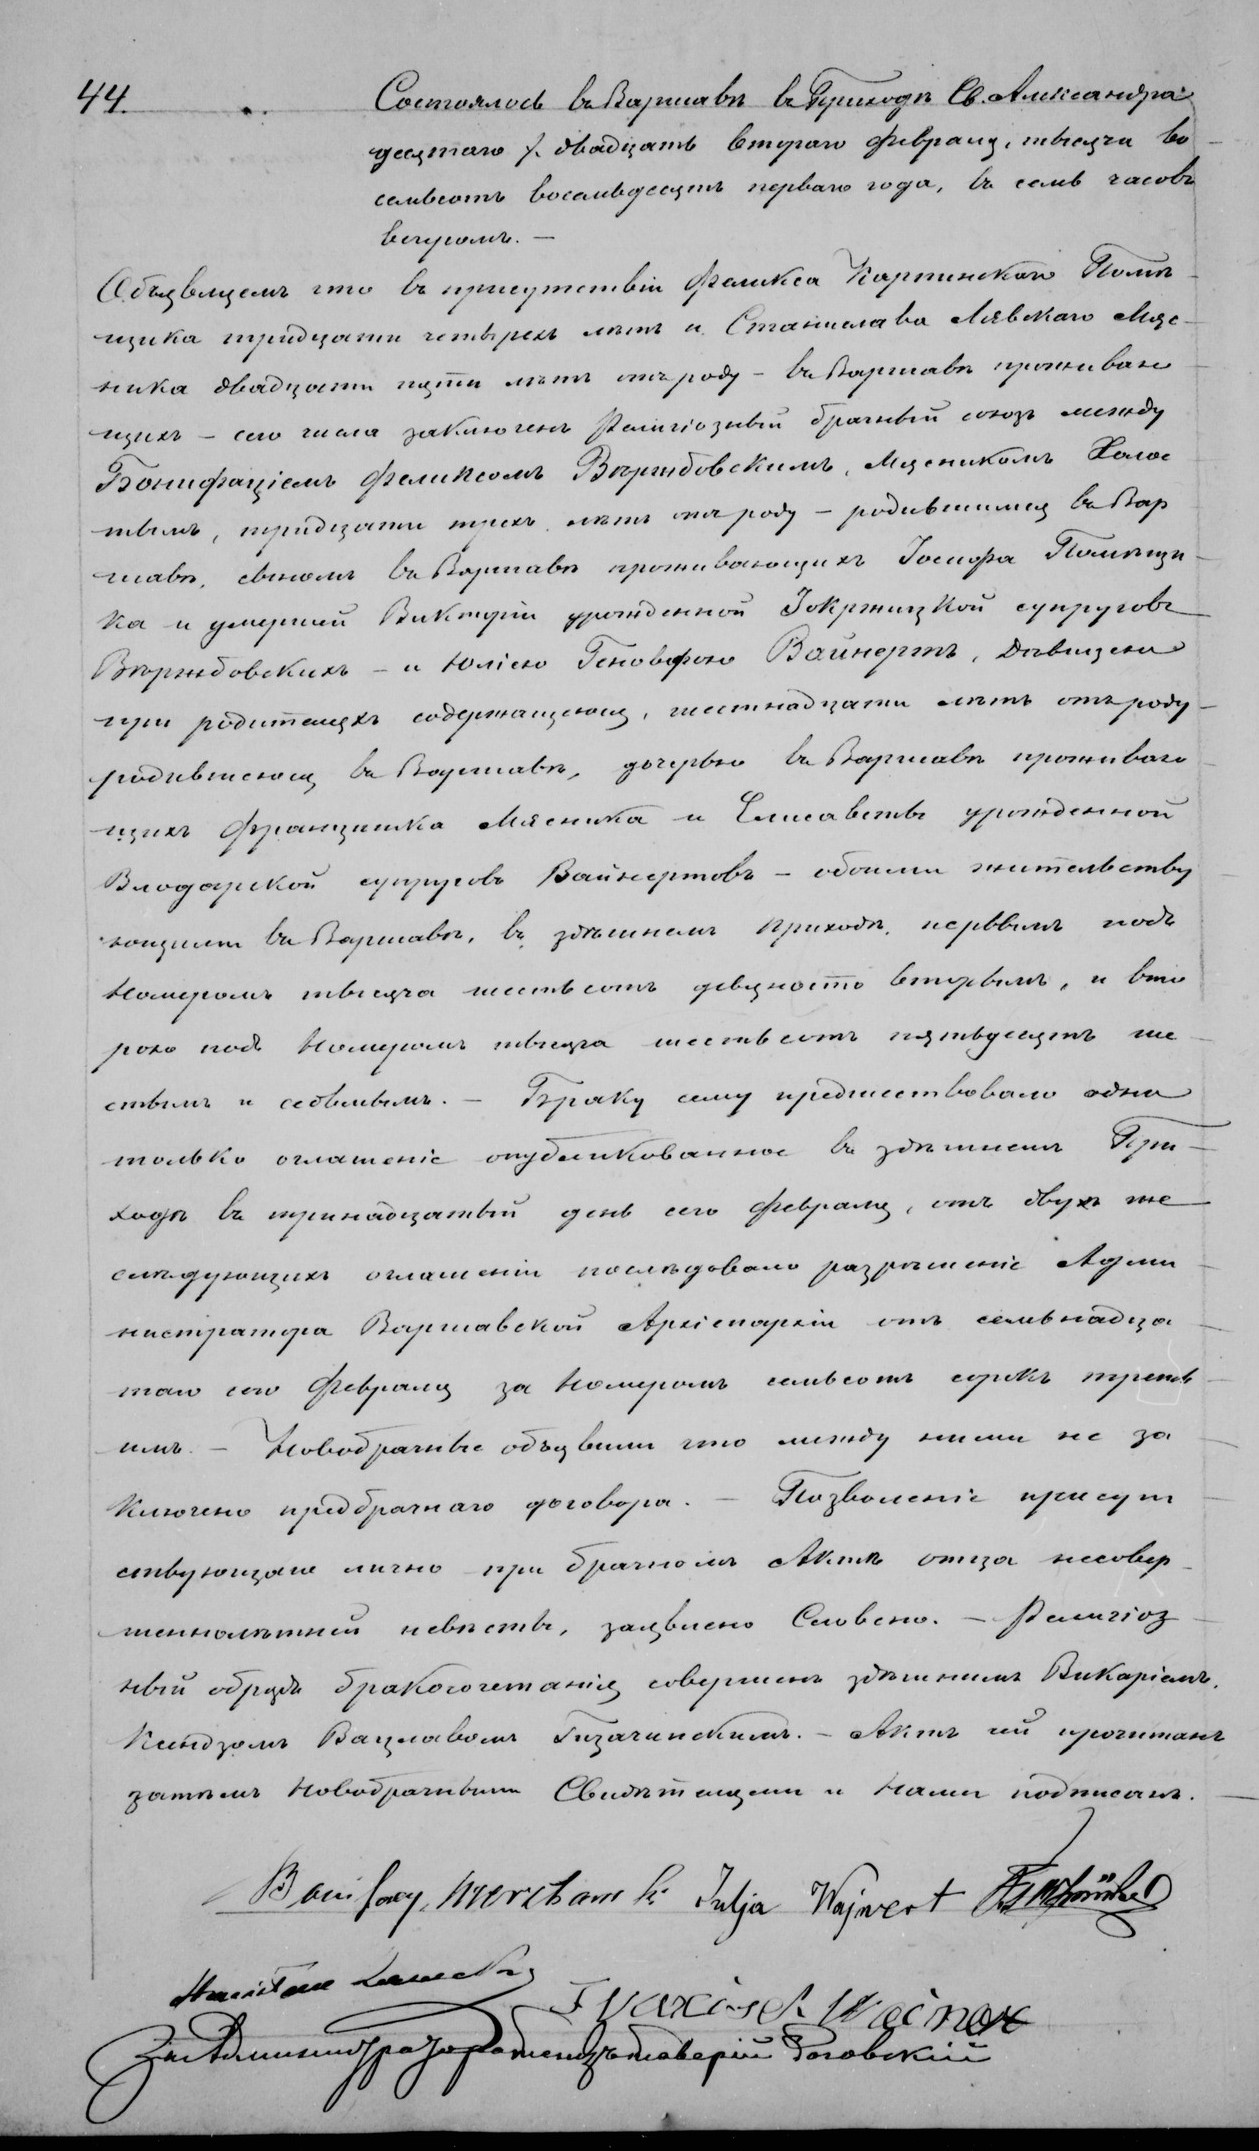 44.
Состоялось въ Варшавѣ въ Приходѣ Св. Александра
десятаго /. двадцать втораго Февраля, тысяча во
семьсотъ восемьдесятъ перваго года, въ семь часовъ
вечеромъ. —
Объявляемъ что въ присутствіи Феликса Карпинскаго Помѣ
щика тридцати четырехъ лѣтъ и Станислава Лявскаго Мяс-
ника двадцати пяти лѣтъ отъ роду — въ Варшавѣ проживаю
щихъ — сего числа заключенъ Религіозный брачный союзъ между
Бонифаціемъ Феликсомъ Вержбовскимъ, Мясникомъ Холос
тымъ, тридцати трехъ лѣтъ отъ роду — родившимся въ Вар
шавѣ, сыномъ въ Варшавѣ проживающихъ Іосифа Помѣщи-
ка и умершей Викторіи урожденной Зокржицкой супруговъ
Вержбовскихъ — и Юліею Геновефою Вайнертъ, Дѣвицею
при родителяхъ содержащеюся, шестнадцати лѣтъ отъ роду —
родившеюся въ Варшавѣ, дочерью въ Варшавѣ проживаю
щихъ Францишка Мясника и Елисаветы урожденной
Влодарской супруговъ Вайнертовъ — обоими жительству
ющими въ Варшавѣ, въ здѣшнемъ приходѣ, первымъ подъ
Номеромъ тысяча шестьсотъ девяносто вторымъ, и вто
рою подъ Номеромъ тысяча шестьсотъ пятьдесятъ ше
стымъ и седьмымъ. — Браку сему предшествовало одно
только оглашеніе опубликованное въ здѣшнемъ При-
ходѣ въ тринадцатый день сего Февраля, отъ двухъ же
слѣдующихъ оглашеніи послѣдовало разрѣшеніе Адми
нистратора Варшавской Архіепархіи отъ семьнадца
таго сего Февраля за Номеромъ семьсотъ сорокъ треть
имъ. — Новобрачные объявили что между ними не за
ключено предбрачнаго договора. — Позволеніе присут
ствующаго лично при брачномъ Актѣ отца несовер-
шеннолѣтней невѣсты, заявлено Словено. — Религіоз
ный обрядъ бракосочетанія совершенъ здѣшнимъ Викаріемъ,
Ксендзомъ Вацлавомъ Гизачинскимъ. — Актъ сей прочитанъ
затѣмъ Новобрачными Свидѣтелями и Нами подписанъ.
Julja Wajnert